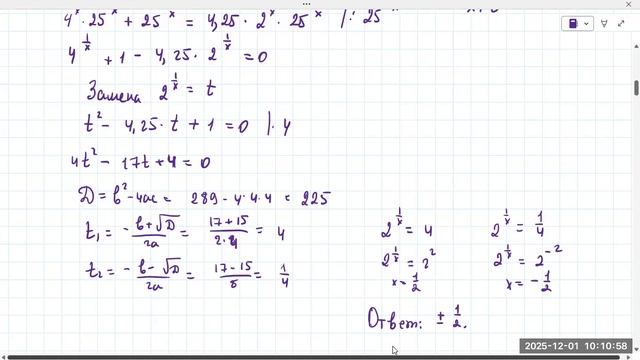 4^x · 25^x + 25^x = 4,25 · 2^x · 25^x |: 25^x
4^(1/x) + 1 - 4,25 · 2^(1/x) = 0
Замена 2^(1/x) = t
t² - 4,25 · t + 1 = 0 |· 4
4t² - 17t + 4 = 0
D = b² - 4ac = 289 - 4·4·4 = 225
t₁ = -b+√D/2a = 17+15/2·4 = 4
t₂ = -b-√D/2a = 17-15/8 = 1/4
2^(1/x) = 4
2^(1/x) = 2²
x = 1/2
2^(1/x) = 1/4
2^(1/x) = 2^-2
x = -1/2
Ответ: ± 1/2.
2025-12-01 10:10:58